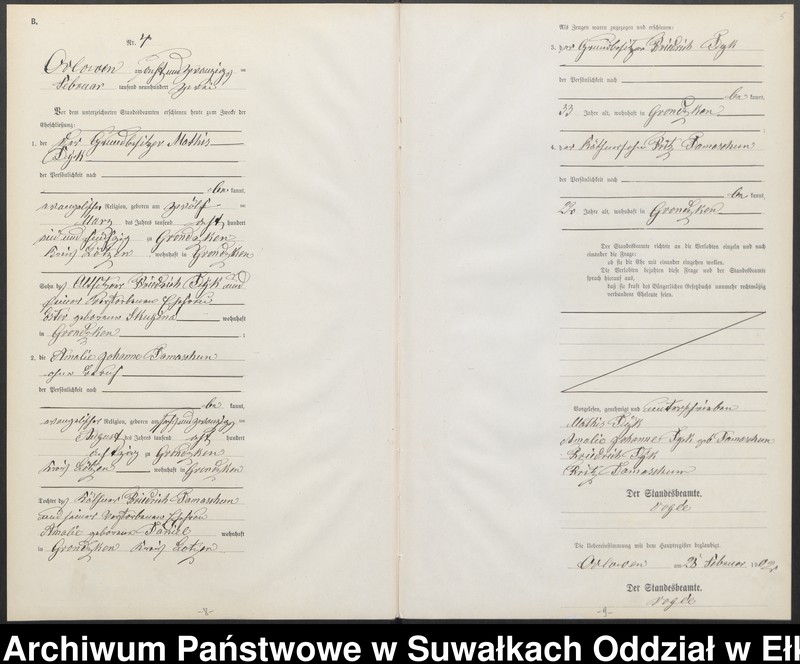 B.
Nr. 4
Orlowen am acht und zwanzigsten
Februar tausend neunhundert zwei
Vor dem unterzeichneten Standesbeamten erschienen heute zum Zwecke der
Eheschließung:
1. der Grundbesitzer Mathis
Pyk
der Persönlichkeit nach
be kannt,
evangelischer Religion, geboren am zwölften
März des Jahres tausend acht hundert
und zu Grondzken
Kreis Lötzen wohnhaft in Grondzken
Sohn des Altsitzer Friedrich Pyk und
seiner verstorbenen Ehefrau
Ester geborene Skupina wohnhaft
in Grondzken ;
2. die Amalie Johanne Tamaschun
ohne Beruf
der Persönlichkeit nach
be kannt,
evangelischer Religion, geboren am zwanzigsten
August des Jahres tausend acht hundert
achtzig zu Grondzken
Kreis Lötzen wohnhaft in Grondzken
Tochter des Käthner Friedrich Tamaschun
und seiner verstorbenen Ehefrau
Amalie geborene Daniel wohnhaft
in Grondzken Kreis Lötzen
-8-
Als Zeugen waren zugezogen und erschienen:
3. der Grundbesitzer Friedrich Pyk
der Persönlichkeit nach
be kannt,
33 Jahre alt, wohnhaft in Grondzken
4. der Käthnersohn Fritz Tamaschun
der Persönlichkeit nach
be kannt,
Jahre alt, wohnhaft in Grondzken
Der Standesbeamte richtete an die Verlobten einzeln und nach
einander die Frage:
ob sie die Ehe mit einander eingehen wollen.
Die Verlobten bejahten diese Frage und der Standesbeamte
sprach hierauf aus,
daß sie kraft des Bürgerlichen Gesetzbuchs nunmehr rechtmäßig
verbundene Eheleute seien.
Vorgelesen, genehmigt und unterschrieben
Mathis Pyk
Amalie Johanne Pyk geb Tamaschun
Friedrich Pyk
Fritz Tamaschun
Der Standesbeamte.
Vogle
Die Uebereinstimmung mit dem Hauptregister beglaubigt.
Orlowen am 28 Februar 1902
Der Standesbeamte.
Vogle
-9-
Archiwum Państwowe w Suwałkach Oddział w Ełk